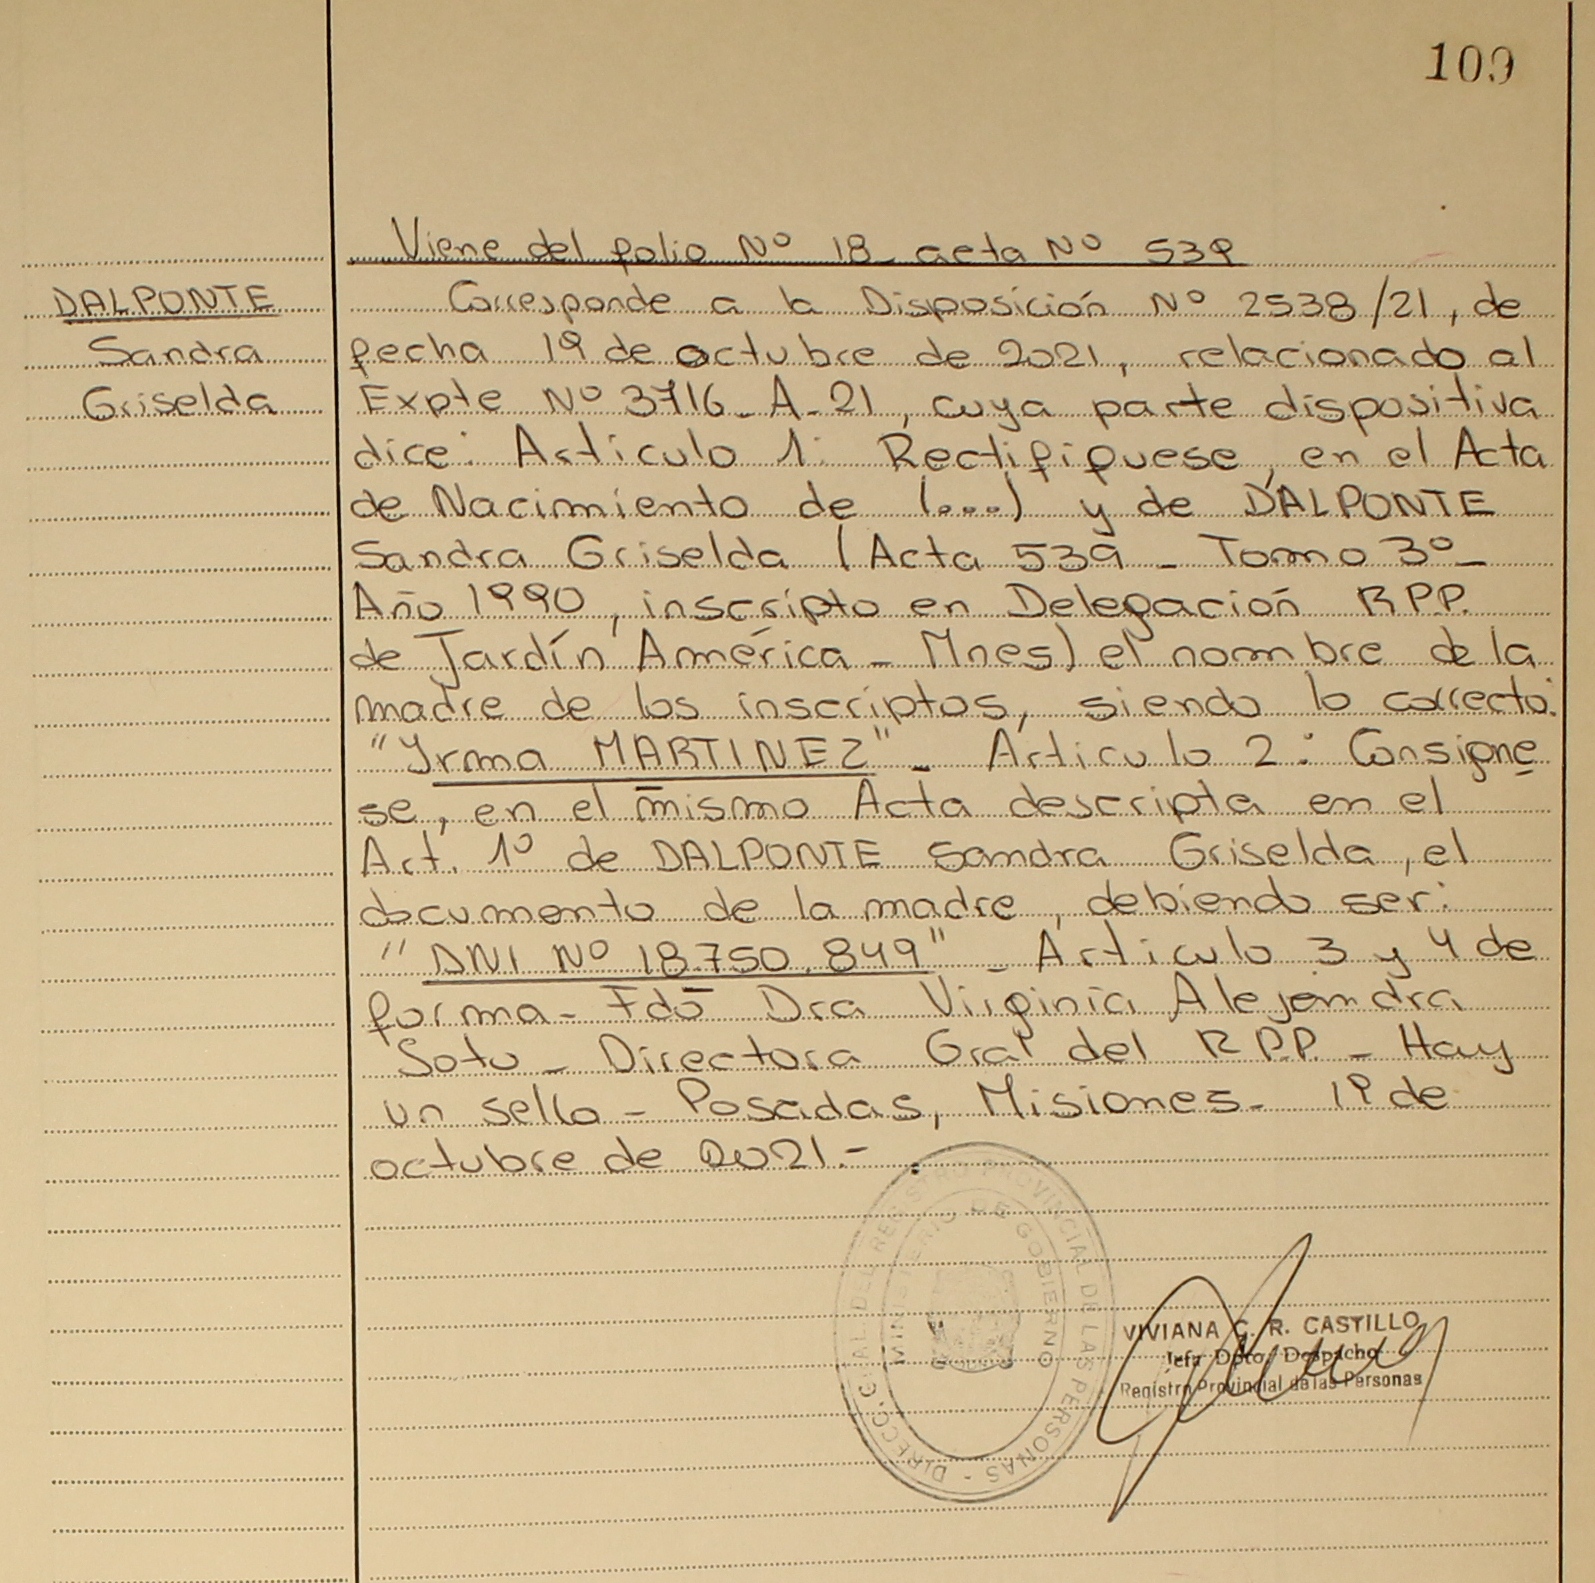 109
Viene del folio Nº 18 acta Nº 539
DALPONTE
Sandra
Griselda
Corresponde a la Disposición Nº 2538/21, de
fecha 19 de octubre de 2021, relacionado al
Expte Nº 3716-A-21, cuya parte dispositiva
dice: Articulo 1: Rectifiquese, en el Acta
de Nacimiento de (...) y de DALPONTE
Sandra Griselda (Acta 539 - Tomo 3º -
Año 1990, inscripto en Delegación RPP.
de Jardín América - Mnes) el nombre de la
madre de los inscriptos, siendo lo correcto:
"Yrma MARTINEZ" - Articulo 2: Consigne
se, en el mismo Acta descripta en el
Art. 1º de DALPONTE Sandra Griselda, el
documento de la madre, debiendo ser:
"DNI Nº 18.750.849" - Articulo 3 y 4 de
forma - Fdo Dra Virginia Alejandra
Soto - Directora Gral del RPP. - Hay
un sello - Posadas, Misiones - 19 de
octubre de 2021.-
DIRECC. GRAL. DEL REGISTRO PROVINCIAL DE LAS PERSONAS -
MINISTERIO DE GOBIERNO
VIVIANA G. R. CASTILLO
Jefa Dpto. Despacho
Registro Provincial de las Personas